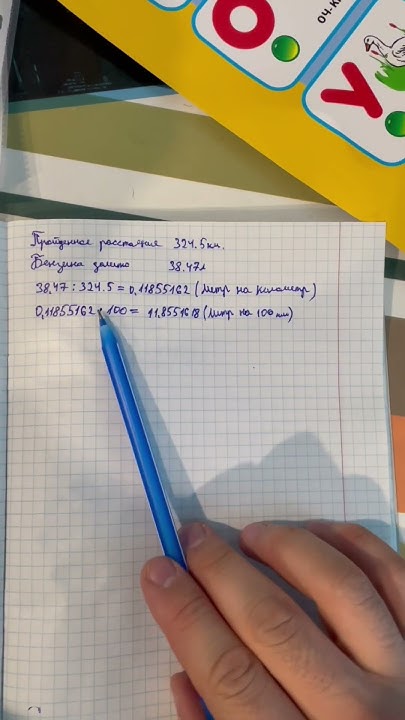 О
04-К
У
Пройденное расстояние 324.5 км.
Бензина залито 38.47л
38.47 : 324.5 = 0,11855162 (Литр на километр)
0,11855162 · 100 = 11.8551618 (Литр на 100 км)